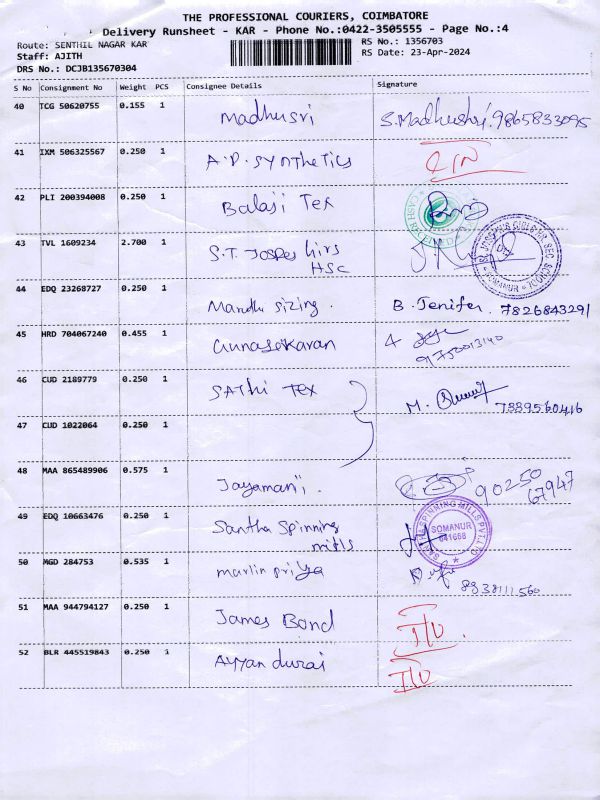 THE PROFESSIONAL COURIERS, COIMBATORE
Delivery Runsheet - KAR - Phone No.:0422-3505555 - Page No.:4
Route: SENTHIL NAGAR KAR
RS No.: 1356703
Staff: AJITH
RS Date: 23-Apr-2024
DRS No.: DCJB135670304
S No Consignment No Weight PCS Consignee Details Signature
40 TCG 50620755 0.155 1 Madhusri S.Madhushri. 9865833095
41 IXM 506325567 0.250 1 A.P. Synthetics
42 PLI 200394008 0.250 1 Balaji Tex
CASH RECEIVED
43 TVL 1609234 2.700 1 S.T. Joshes Girs
HSC
SOMANUR
44 EDQ 23268727 0.250 1 Mandhi Sizing. B. Jenifer. 7826843291
45 HRD 704067240 0.455 1 Gunasekaran
9750013140
46 CUD 2189779 0.250 1 Sathi Tex M. 7339560416
47 CUD 1022064 0.250 1
48 MAA 865489906 0.575 1 Jayamani. 90250
67947
49 EDQ 10663476 0.250 1 Santha Spinning
mills
SPINNING MILLS PVT LTD
SOMANUR
641668
50 MGD 284753 0.535 1 Marlin Priya
8838111560
51 MAA 944794127 0.250 1 James Bond
52 BLR 445519843 0.250 1 Ayyan durai